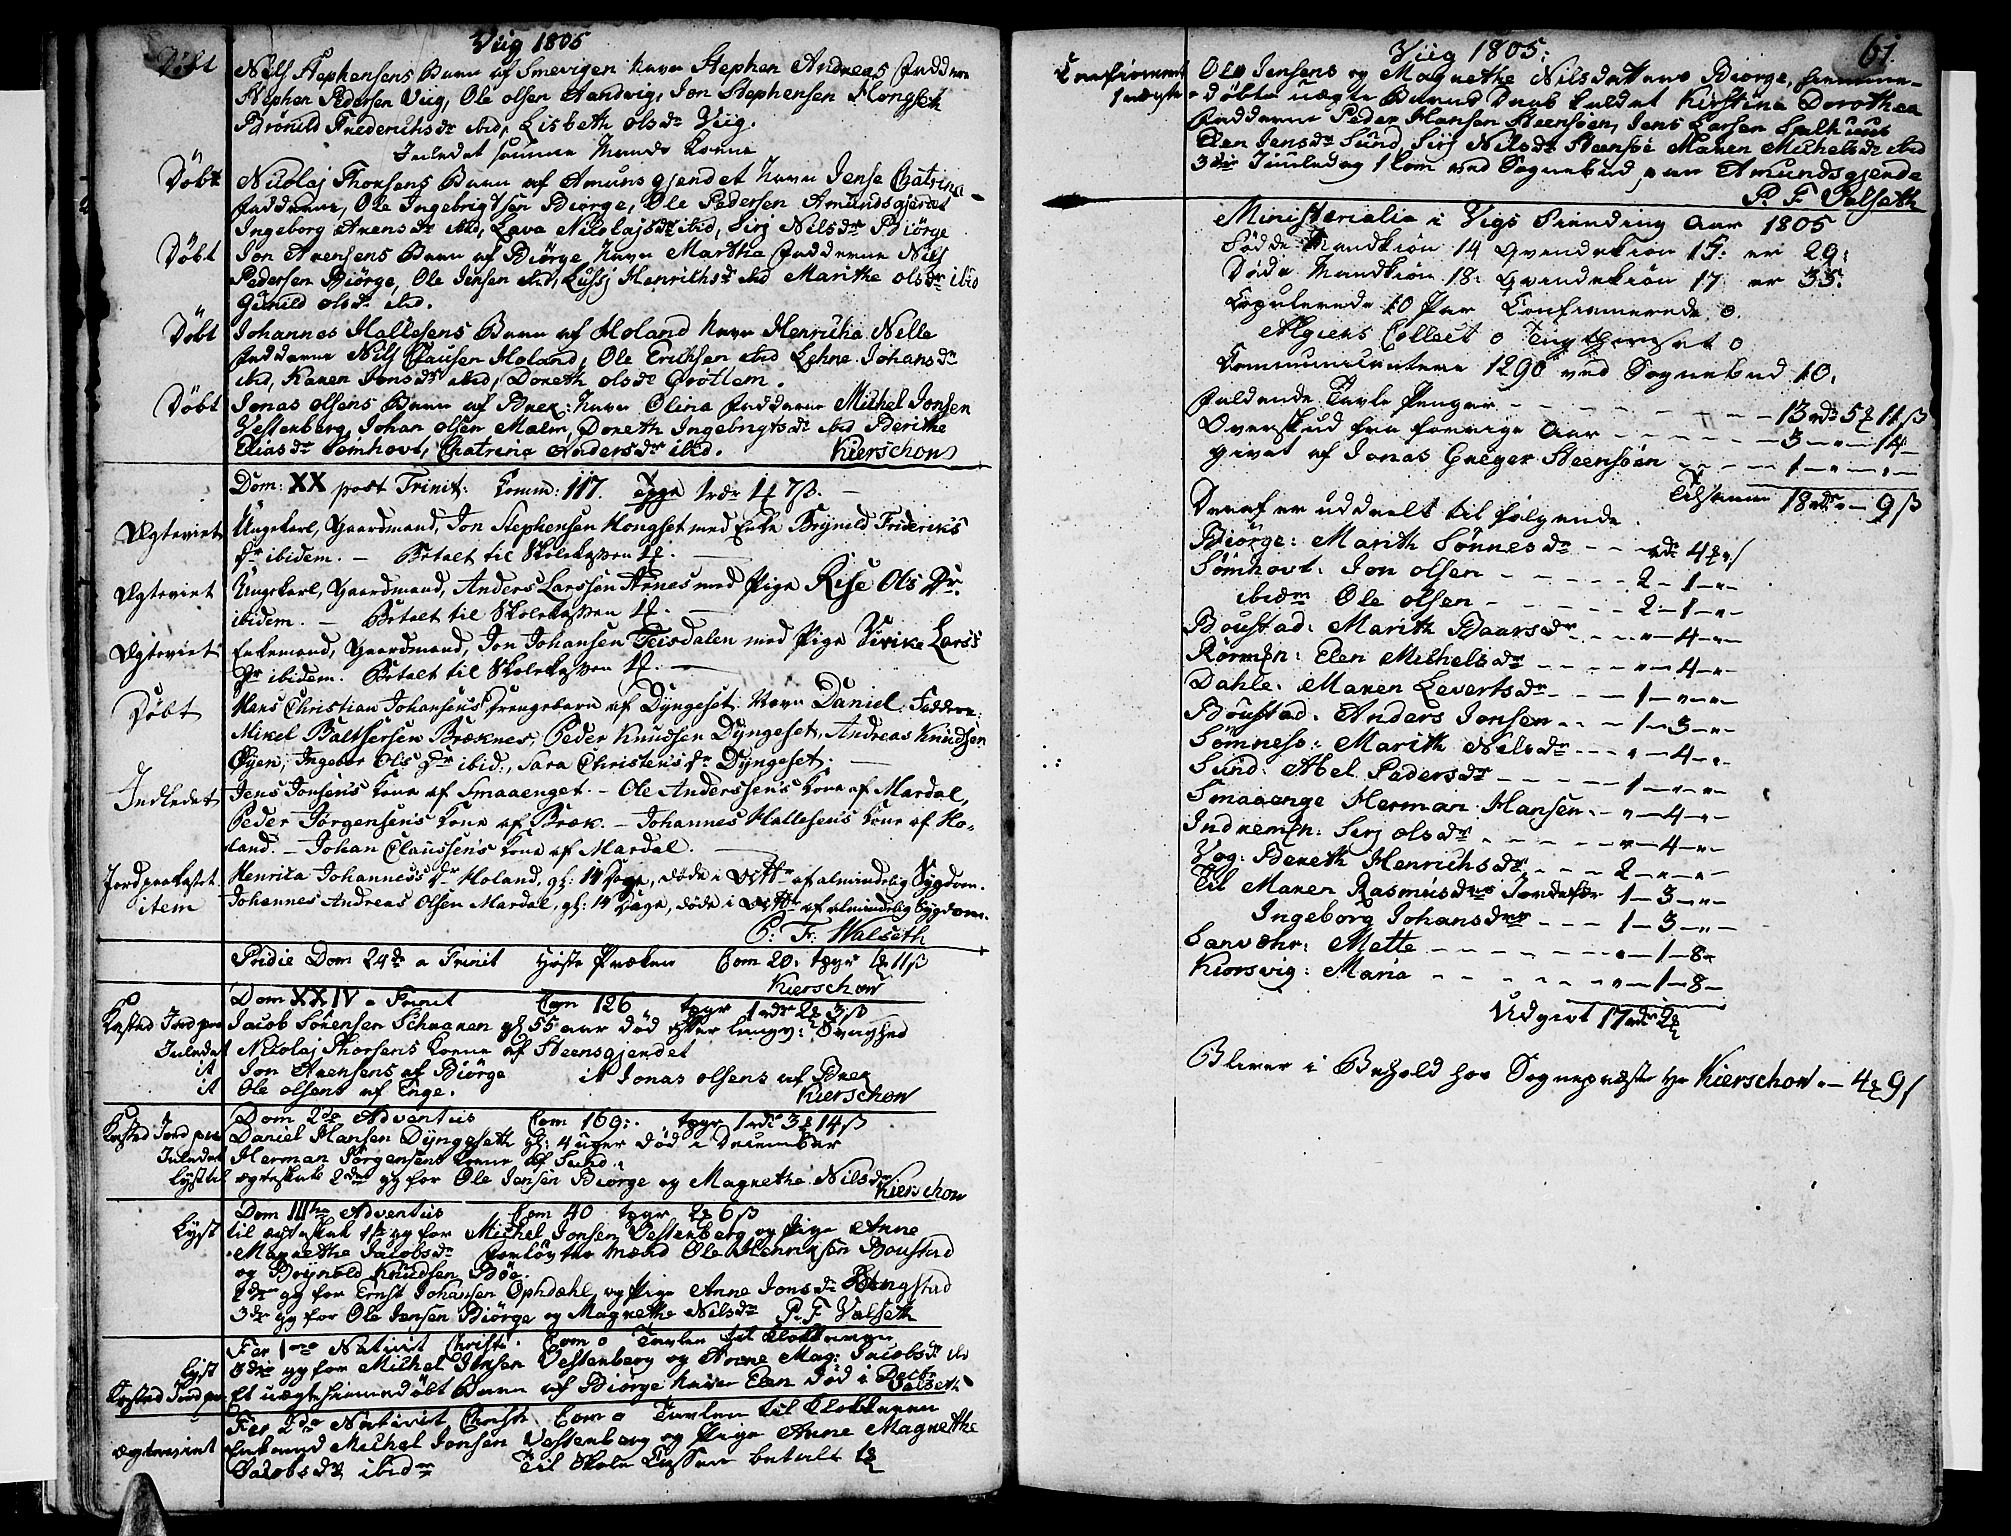 Viig 1805
Döbt Nils Stephensens Barn af Smevigen Navn Stephen Andreas Faddere
Stephen Pedersen Viig, Ole olsen Sandvig, Jon Stephensen Hongseth
Brönild Frederichsdr ibid, Lisbeth olsdr Viig.
Inledet samme Mands Kone
Döbt Nicolaj Thorsens Barn af Amunsgjerdet Navn Jense Chatrina
Fadderne, Ole Ingebrigtsen Biörge, Ole Pedersen Amundsgjerdet
Ingeborg Arensdr ibid, Lava Nicolajsdr ibid, Siri Nilsdr Biörge
Döbt Jon Arensens Barn af Biörge Navn Martha Fadderne Nils
Pedersen Biörge, Ole Jensen ibid, Lussj Henrichsdr ibid Marithe olsdr ibid
Gunild olsdr ibid.
Döbt Johannes Hallesens Barn af Holand Navn Henricha Nelle
Fadderne Nils Clausen Holand, Ole Erichsen ibid Lehne Johansdr
ibid, Karen Jonsdr ibid, Doreth olsdr Crötlem.
Döbt Jonas olsens Barn af Brex: Navn Olina Fadderne Michel Jonsen
Vestenberg, Johan olsen Malm, Doreth Ingebrigtsdr ibid Berithe
Eliasdr Sömhovt, Chatrina Andersdr ibid. Kierschow
Dom: XX post Trinit: Comm: 117. Tavle 1 rdr 1 ₰ 7 ß.
Ægteviet Ungekarl, Gaardmand, Jon Stephensen Hongset med Enke Brynild Friderik's
dr ibidem. — Betalt til Skolekassen 1 ₰.
Ægteviet Ungekarl, Gaardmand, Anders Larssen Arnes med Pige Rise Ols Dr.
ibidem. — Betalt til Skolekassen 1 ₰.
Ægteviet Enkemand, Gaardmand, Jon Johansen Teisdalen med Pige Sirike Lars's
dr ibidem. Betalt til Skolekassen 1 ₰.
Döbt Hans Christian Johansens Drengebarn af Dyngeset. Navn Daniel. Faddere:
Mikel Baltsersen Bræknes, Peder Knudsen Dyngeset, Andreas Knudsen
Öyen, Ingebor Ols dr ibid:, Sara Christens dr Dyngeset.
Indledet Jens Jonsens Kone af Smaaenget. — Ole Anderssens Kone af Mardal,
Peder Jörgensens Kone af Bræk. — Johannes Hallesens Kone af Ho-
land. — Johan Claussens Kone af Mardal.
Jordpaakastet Henrica Johannes's dr Holand, gl: 14 Dage, döde i Octbr af almindelig Sygdom.
item Johannes Andreas Olsen Mardal, gl: 14 Dage, döde i Octbr af almindelig Sygdom.
P: F: Walseth
Pridie Dom 24de a Trinit Höste Præken Com 20: 1 ₰ 11 ß
Kierschow
Dom XXIV a Trinit Com 126 1 rdr 2 ₰ 3 ß
Kasted Jord paa Jacob Sörensen Schranen gl 55 aar död efter langv: Svaghed
Inledet Nicolaj Thorsens Kone af Steensgjerdet
it Jon Arensens af Biörge it Jonas olsens af Brex
it Ole olsens af Enge. Kierschow
Dom 2da Adventus Com 169: 1 rdr 3 ₰ 14 ß
Kasted Jord paa Daniel Hansen Dÿngeseth gl: 4 uger död i December
Inledet Herman Jörgensens Kone af Sund.
Lyst til ægteskab 2den gg for Ole Jensen Biörge og Magrethe Nilsdr
Kierschow
Dom IIItia Adventus Com 40 2 ₰ 6 ß
Lyst til ægteskab 1ste gg for Michel Jonsen Vestenberg og Pige Anne
Magrethe Jacobsdr Forlovtes Mænd Ole Henrichsen Boustad
og Brynild Knudsen Böe.
2den gg for Ernst Johansen Ophdahl, og Pige Anne Jonsdr Bangstad
3die gg for Ole Jensen Biörge og Magrethe Nilsdr P. F Valseth
Fer 1ma Nativit Christi. Com 0 Tavlen til Klokkeren
Lyst 3die gg for Michel Jonsen Vestenberg og Anne Mag: Jacobsdr ib
Kasted Jord paa Et uægte hiemedöbt Barn af Biörge Navn Elen död i Decbr
Valseth
Fer 2da Nativit Christi Com 0 Tavlen til Klokkeren
ægteviet Enkemand Michel Jonsen Vestenberg og Pige Anne Magrethe
Jacobsdr ibidem Til Skole Cassen betalt 1 ₰
Viig 1805: 61.
Confirmeret Ole Jensens og Magrethe Nilsdatters Biörge, hiemme-
1 uægte döbte uægte Barns Daab kaldet Kirstina Dorothea
Fadderne Peder Hansen Steensöen, Jens Larsen Salhuus
Elen Jensdr Sund, Siri Nilsdr Steensöe Maren Michelsdr ibid
3die Juuledag 1 Com ved Sognebud paa Amundsgjerde
P. F Valseth
Ministerialia i Vigs Prinding Aar 1805
Födde Mandkiön 14 Qvindekiön 15: er 29:
Döde Mandkiön 18: Qvindekiön 17 er 35:
Copulerede 10 Par Confirmerede 0.
Algiers Collect 0 Tugthuuset 0
Communicantere 1290 ved Sognebud 10.
faldende Tavle Penger 13 rdr 5 ₰ 11 ß
Overskud fra forrige Aar 3 - " - 14
givet af Jonas Greger Steensöen 1 - " - "
Tilsamen 18 rdr " - 9 ß
Deraf er uddeelt til fölgende.
Biörge: Marith Sönnesdr rdr 4 ₰ " ß
Sömhovt: Jon olsen 2 - 1 - "
ibidm Ole olsen 2 - 1 - "
Boustad: Marith Baarsdr " - 4 - "
Rörmen: Elen Michelsdr " - 4 - "
Dahle: Maren Levertsdr 1 - " - "
Boustad: Anders Jensen 1 - 3 - "
Sömness: Marith Nilsdr " - 4 - "
Sund: Abel Pedersdr 1 - " - "
Smaaenge Herman Hansen " - 4 - "
Indremen: Serj olsdr " - 4 - "
Vog: Bereth Henrichsdr 2 - " - "
Til Maren Rasmusdrs Jordefær 1 - 3 - "
Ingeborg Johansdrs 1 - 3 - "
Sanvæhr: Mette " - 1 - 8
Kiorsvig: Maria " - 1 - 8
Udgivt 17 rdr 2 ₰
Bliver i Behold hos Sognepræsten Hr Kierschow " - 4 ₰ 9 ß